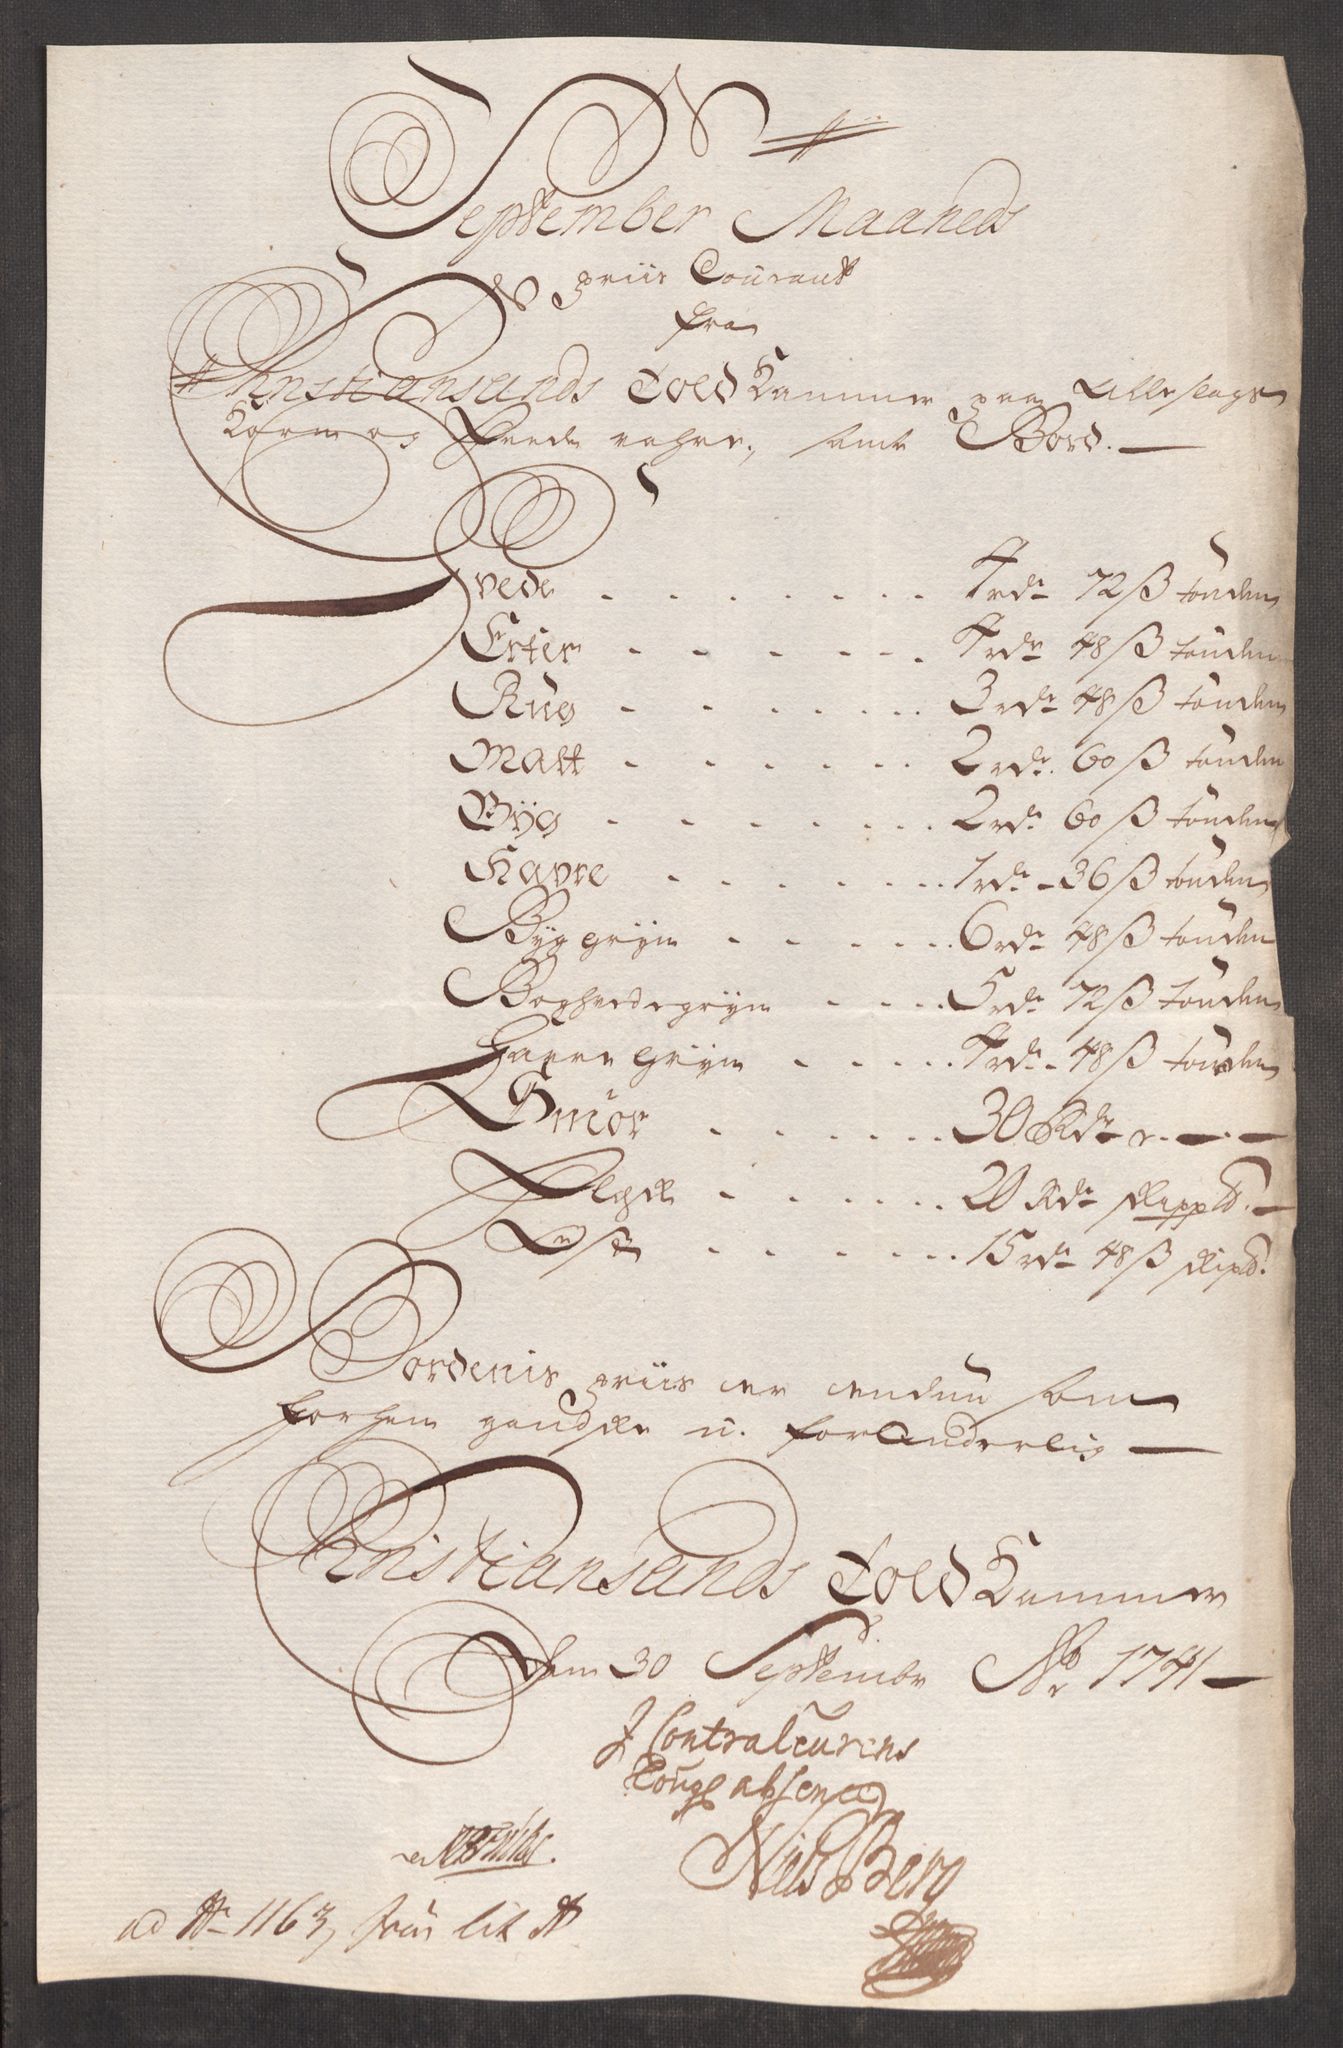 September Maaneds
priis Courant
fra
Christiansands Told Kammer paa Alle slags
Korn og Feede vahre, samt Bord.
Hvede 4 rdr 72 ß tønden
Erter 4 rdr 48 ß tønden
Rug 3 rdr 48 ß tønden
Malt 2 rdr 60 ß tønden
Byg 2 rdr 60 ß tønden
Havre 1 rdr 36 ß tønden
Byg gryn 6 rdr 48 ß tønden
Boghvede gryn 5 rdr 72 ß tønden
Havre gryn 4 rdr 48 ß tønden
Smør 30 Rdr
Flesk 20 Rdr skippd.
15 rdr 48 ß skipd.
Bordenis priis er endnu som
forhen gandske u-foranderlig
Christiansands Told Kammer
den 30 Septembr Ao 1741
J Contraleurens
absence
Niels Berg
ad No 1163 lit A